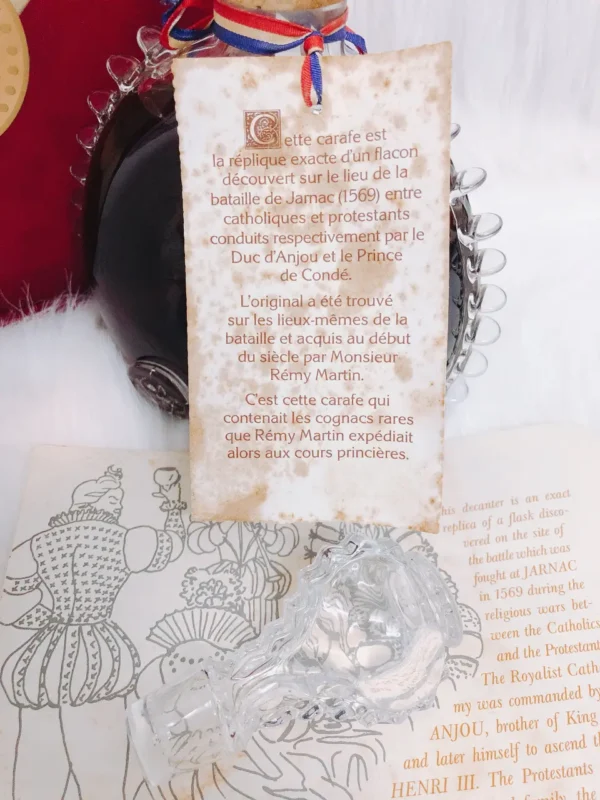 Cette carafe est
la réplique exacte d'un flacon
découvert sur le lieu de la
bataille de Jarnac (1569) entre
catholiques et protestants
conduits respectivement par le
Duc d'Anjou et le Prince
de Condé.
L'original a été trouvé
sur les lieux-mêmes de la
bataille et acquis au début
du siècle par Monsieur
Rémy Martin.
C'est cette carafe qui
contenait les cognacs rares
que Rémy Martin expédiait
alors aux cours princières.
his decanter is an exact
replica of a flask disco-
vered on the site of
the battle which was
fought at JARNAC
in 1569 during the
religious wars bet-
ween the Catholics
and the Protestant
The Royalist Cath
my was commanded by
ANJOU, brother of King
and later himself to ascend th
HENRI III. The Protestants
family, the